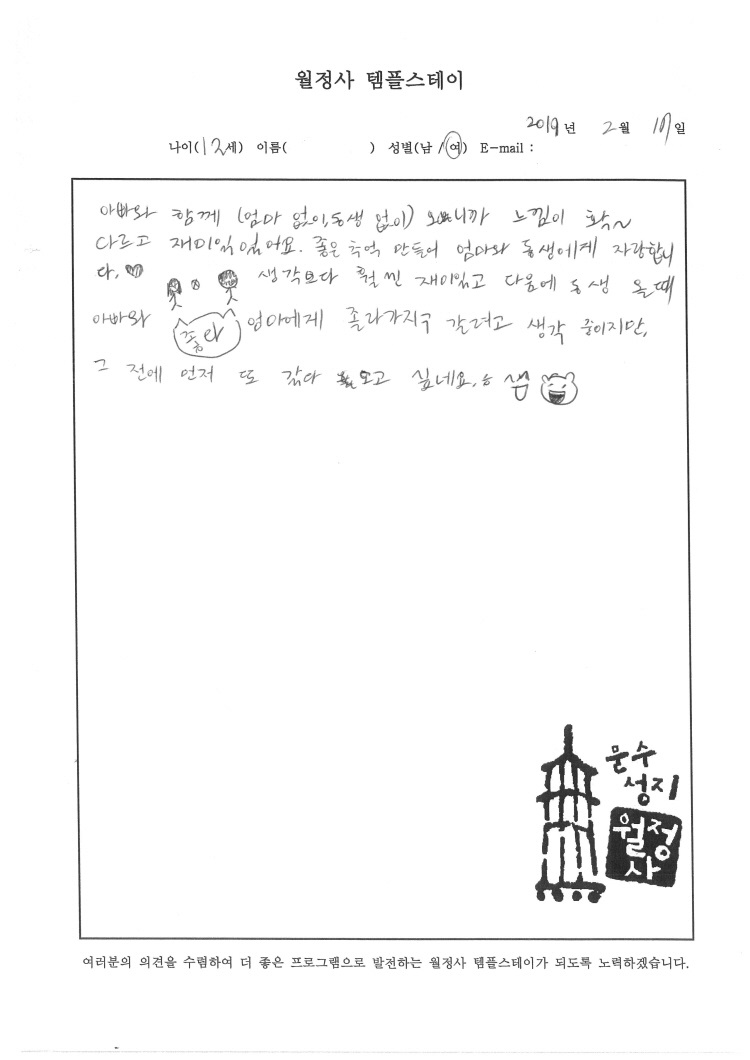 월정사 템플스테이
2019년 2월 17일
나이(12세) 이름( ) 성별(남/여) E-mail :
아빠와 함께 (엄마 없이,동생 없이) 오니까 느낌이 확~
다르고 재미있었어요. 좋은 추억 만들어 엄마와 동생에게 자랑합니
다.♥ 생각보다 훨씬 재미있고 다음에 동생 올때
아빠와 졸라 엄마에게 졸라가지구 갈려고 생각 중이지만,
그 전에 먼저 또 갔다 오고 싶네요.
문수
성지
월정
사
여러분의 의견을 수렴하여 더 좋은 프로그램으로 발전하는 월정사 템플스테이가 되도록 노력하겠습니다.